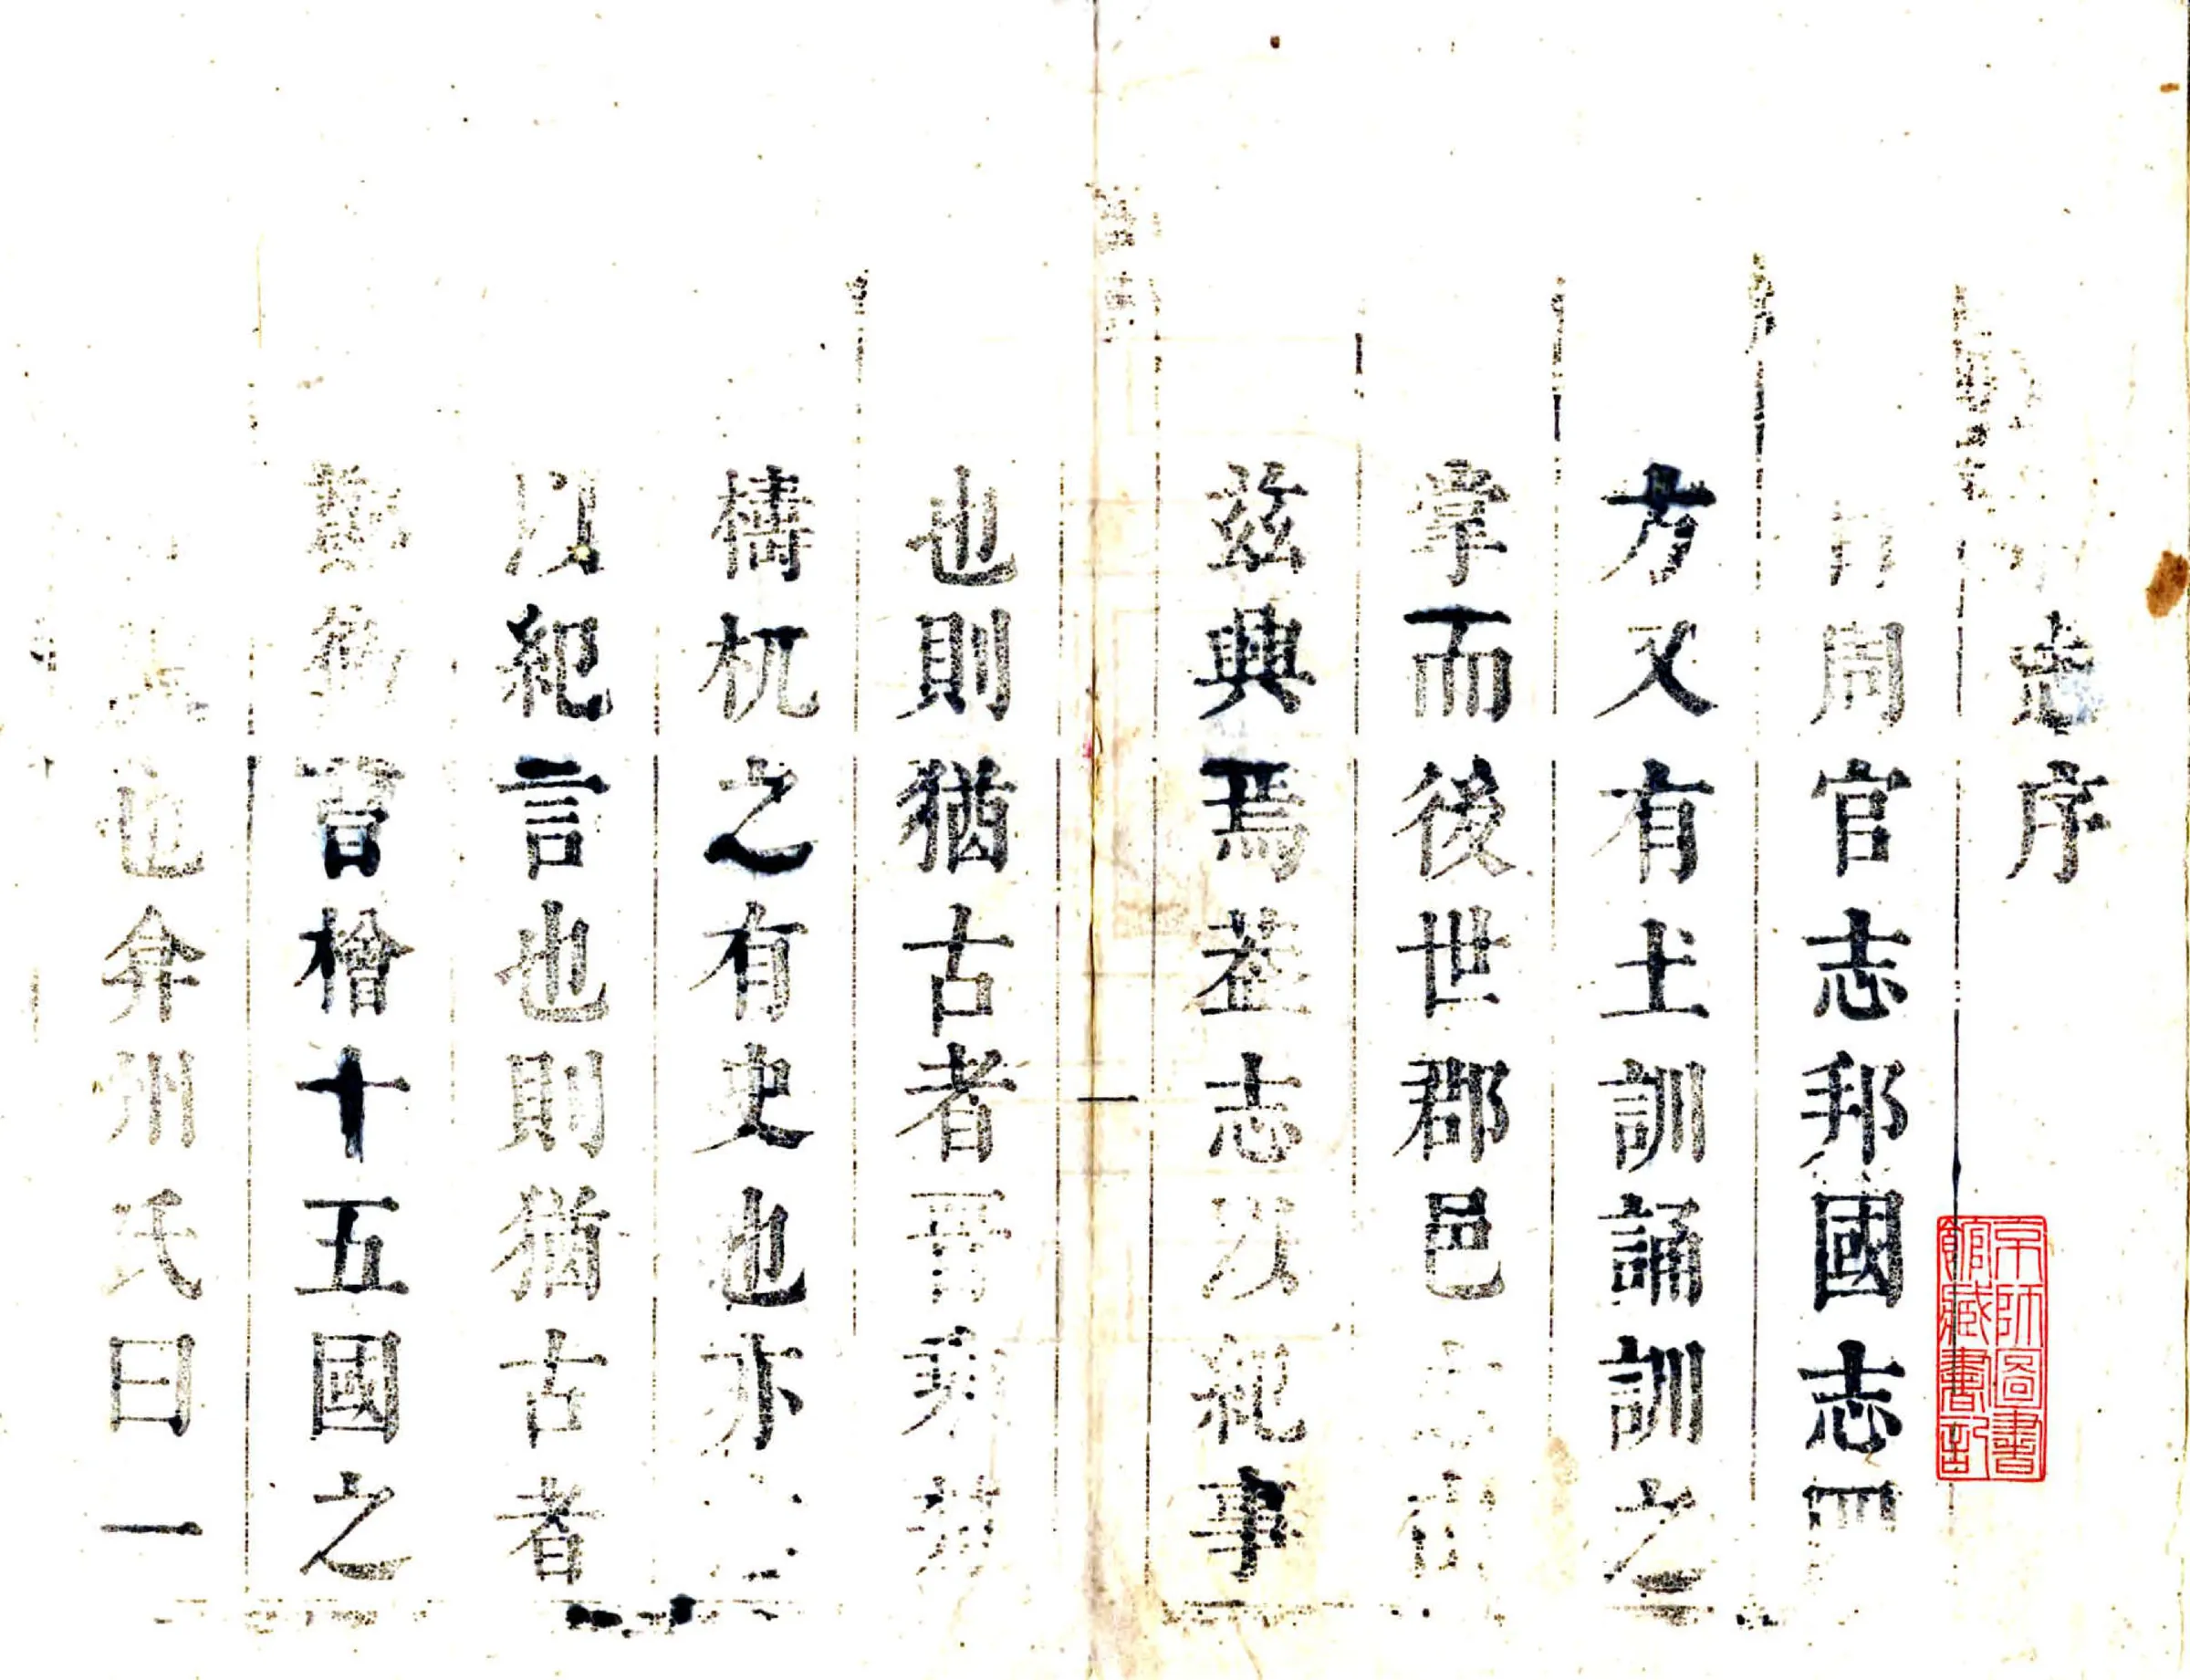 志序
周官志邦國志四
方又有土訓誦訓之
掌而後世郡邑
茲興焉葢志以紀事
也則猶古者晉乘楚
檮杌之有史也亦
以紀言也則猶古者
鄭衛曹檜十五國之
也弇州氏曰一
一
京師圖書
館藏書記